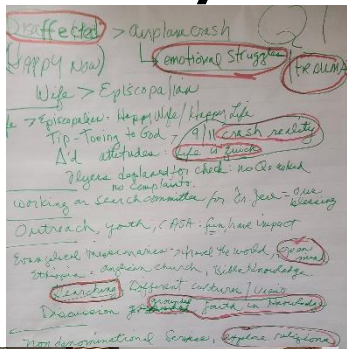 Disaffected > airplane crash Q1
(Happy now) emotional struggles
trauma
Wife > Episcopalian
> Episcopalian - Happy Wife / Happy Life
Tip-Toeing to God - 9/11 crash reality
Δ'd attitudes: life is quick
no complaints.
Working on search committee for = blessing
Outreach, youth, CASA: fun/have impact
Evangelical Missionaries > travel the world, open mind
church, Bible knowledge
Searching Different cultures / views
Discussion grounded faith in knowledge
Non denominational Services, explore religions